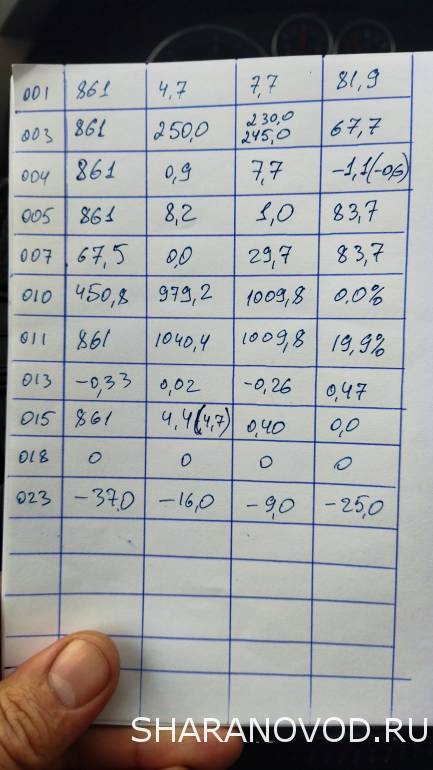 001 861 4,7 7,7 81,9
003 861 250,0 230,0 245,0 67,7
004 861 0,9 7,7 -1,1(-0,6)
005 861 8,2 1,0 83,7
007 67,5 0,0 29,7 83,7
010 450,8 979,2 1009,8 0,0%
011 861 1040,4 1009,8 19,9%
013 -0,33 0,02 -0,26 0,47
015 861 4,4(4,7) 0,40 0,0
018 0 0 0 0
023 -37,0 -16,0 -9,0 -25,0
SHARANOVOD.RU